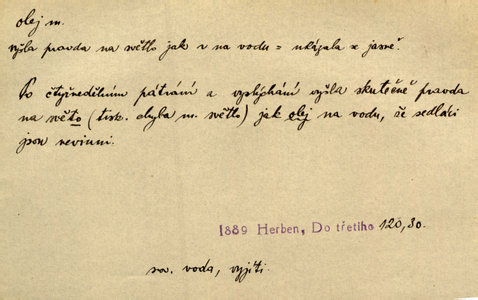 olej m.
vyšla pravda na světlo jak o na vodu = ukázala se jasně.
Po čtyřnedělním pátrání a vyslýchání vyšla skutečně pravda
na světo (tisk. chyba m. světlo) jak olej na vodu, že sedláci
jsou nevinni.
1889 Herben, Do třetího 120,30.
sov. voda, vyjíti.